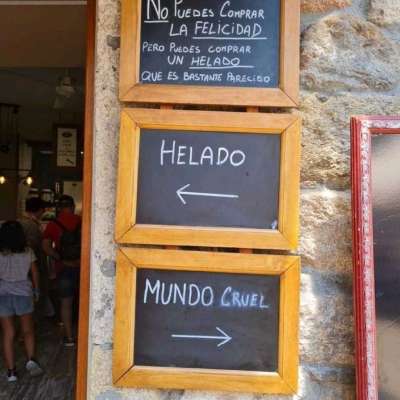 No Puedes Comprar
la FELICIDAD
Pero Puedes comprar
un HELADO
que es bastante parecido
HELADO
←
MUNDO CRUEL
→